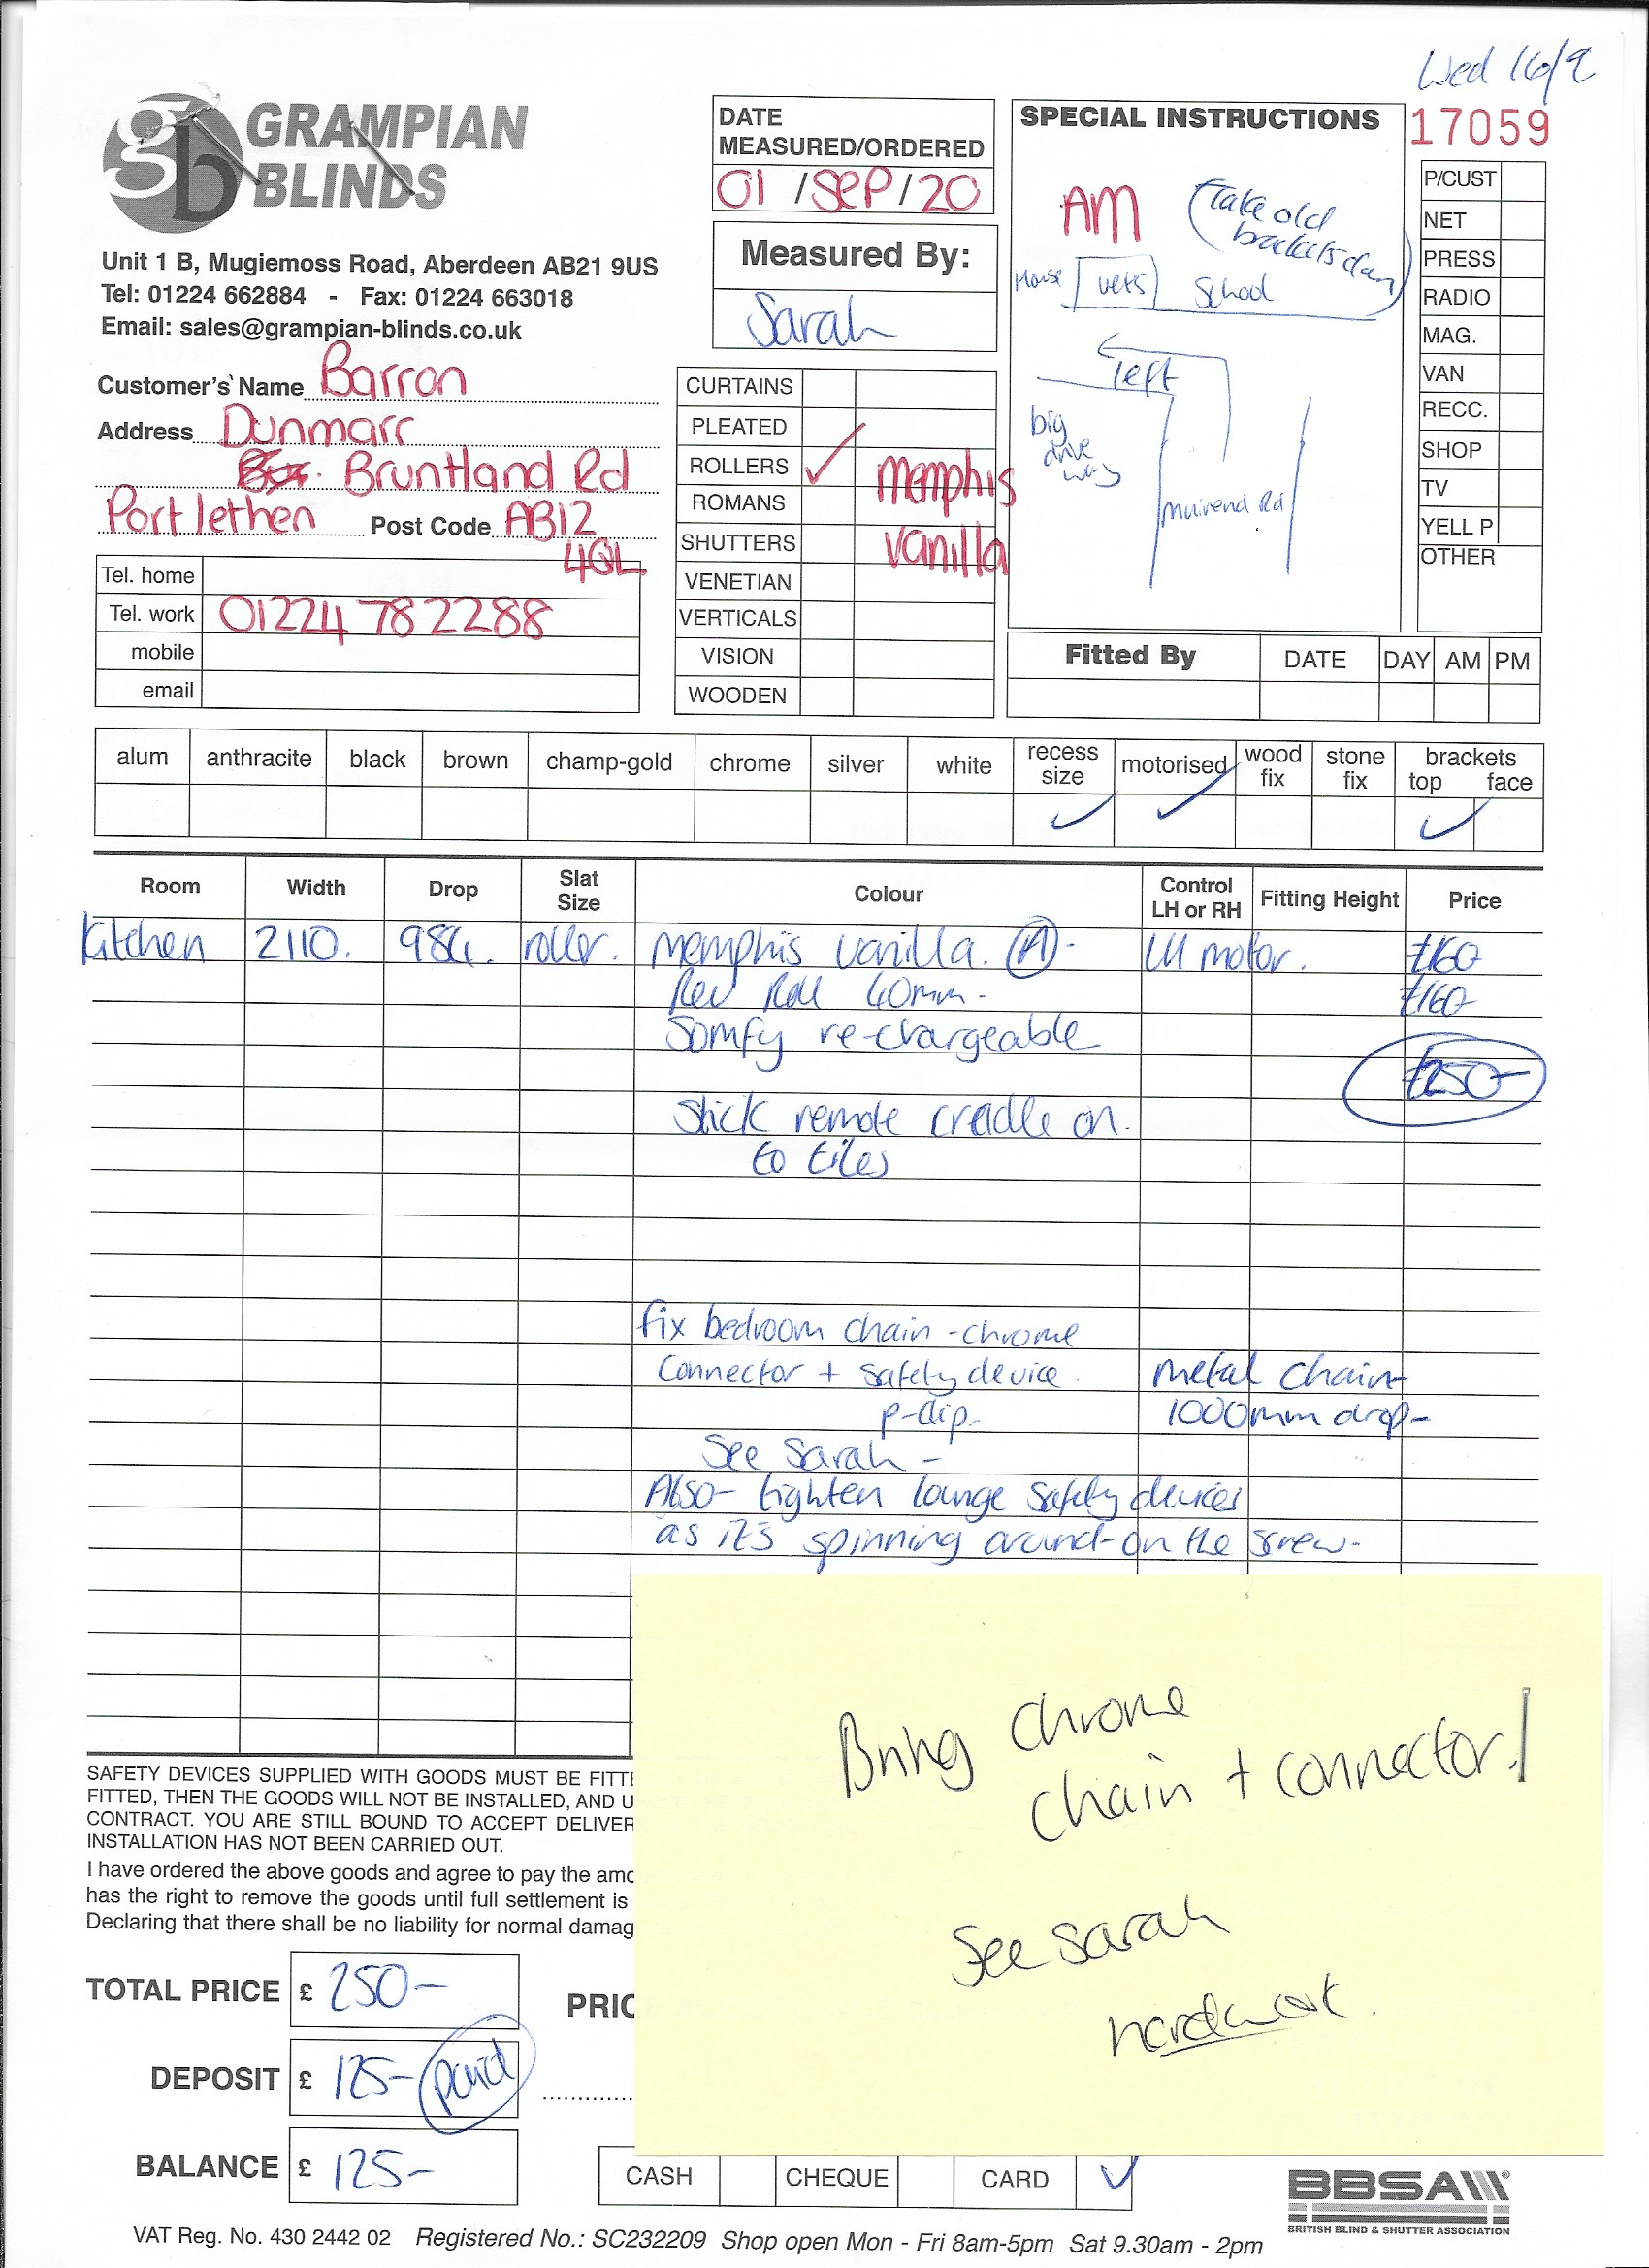 Wed 16/9
17059
GRAMPIAN
BLINDS
gb
Unit 1 B, Mugiemoss Road, Aberdeen AB21 9US
Tel: 01224 662884 - Fax: 01224 663018
Email: sales@grampian-blinds.co.uk
DATE
MEASURED/ORDERED
01 / SEP / 20
Measured By:
Sarah
SPECIAL INSTRUCTIONS
AM
(take old
brackets down)
House vets School
left
big
drive
way
muirend Rd
P/CUST
NET
PRESS
RADIO
MAG.
VAN
RECC.
SHOP
TV
YELL P
OTHER
Customer's Name Barron
Address Dunmarr
Bruntland Rd
Portlethen Post Code AB12
4QL
Tel. home
Tel. work 01224 782288
mobile
email
CURTAINS
PLEATED
ROLLERS ✓ memphis
ROMANS
SHUTTERS vanilla
VENETIAN
VERTICALS
VISION
WOODEN
Fitted By DATE DAY AM PM
alum anthracite black brown champ-gold chrome silver white recess size motorised wood fix stone fix brackets top face
✓ ✓ ✓
Room Width Drop Slat Size Colour Control LH or RH Fitting Height Price
Kitchen 2110. 984. roller. memphis vanilla. (A)- LH motor. £160
Rev Roll 40mm - £160
Somfy re-chargeable
£250-
Stick remote cradle on.
to tiles
fix bedroom chain - chrome
Connector + safety device. metal chain-
p-clip- 1000mm drop-
See Sarah -
Also- tighten lounge safety devices
as it's spinning around-on the screw-
Bring chrome
chain + connector!
See Sarah
SAFETY DEVICES SUPPLIED WITH GOODS MUST BE FITTE
FITTED, THEN THE GOODS WILL NOT BE INSTALLED, AND U
CONTRACT. YOU ARE STILL BOUND TO ACCEPT DELIVER
INSTALLATION HAS NOT BEEN CARRIED OUT.
I have ordered the above goods and agree to pay the amo
has the right to remove the goods until full settlement is
Declaring that there shall be no liability for normal damag
TOTAL PRICE £ 250-
PRIC
DEPOSIT £ 125- paid
BALANCE £ 125-
CASH CHEQUE CARD ✓
BBSA
BRITISH BLIND & SHUTTER ASSOCIATION
VAT Reg. No. 430 2442 02 Registered No.: SC232209 Shop open Mon - Fri 8am-5pm Sat 9.30am - 2pm